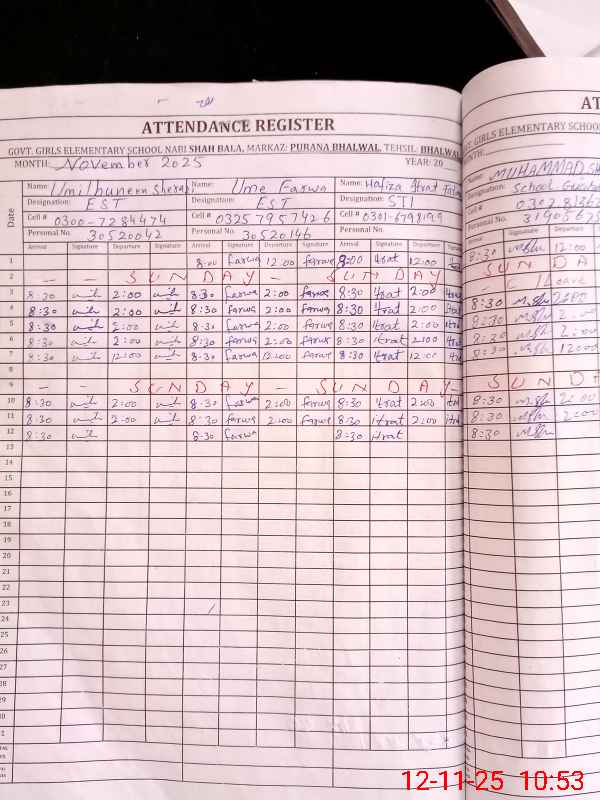 ATTENDANCE REGISTER
GOVT. GIRLS ELEMENTARY SCHOOL NABI SHAH BALA, MARKAZ: PURANA BHALWAL, TEHSIL: BHALWAL
MONTH: November 2025 YEAR: 20
Date
Name: Name: Ume Farwa Name: Hafiza Itrat
Designation: EST Designation: EST Designation: STI
Cell # 0300-7284474 Cell # 0325 7957426 Cell # 0301-6798199
Personal No. 30520042 Personal No. 30520146 Personal No.
Arrival Signature Departure Signature Arrival Signature Departure Signature Arrival Signature Departure
1 8:00 farwa 12:00 farwa 8:00 itrat 12:00
2 - - SUNDAY - SUNDAY
3 8:30 2:00 8:30 farwa 2:00 farwa 8:30 itrat 2:00 itra
4 8:30 2:00 8:30 farwa 2:00 farwa 8:30 itrat 2:00 itra
5 8:30 2:00 8:30 farwa 2:00 farwa 8:30 itrat 2:00 itra
6 8:30 2:00 8:30 farwa 2:00 farwa 8:30 itrat 2:00 itra
7 8:30 12:00 8:30 farwa 12:00 farwa 8:30 itrat 12:00 itra
8
9 - - SUNDAY - SUNDAY -
10 8:30 2:00 8:30 farwa 2:00 farwa 8:30 itrat 2:00 itra
11 8:30 2:00 8:30 farwa 2:00 farwa 8:30 itrat 2:00 itra
12 8:30 8:30 farwa 8:30 itrat
13
14
15
16
17
18
19
20
21
22
23
24
25
26
27
28
29
30
AT
GIRLS ELEMENTARY SCHOO
MONTH:
Name: MUHAMMAD
Designation: School
Cell #
Personal No.
Signature Departure
8:30 12:00
SUNDA
Leave
8:30
8:30 2:00
8:30 2:00
8:30 12:00
SUND
8:30 2:00
8:30 2:00
8:30
12-11-25 10:53